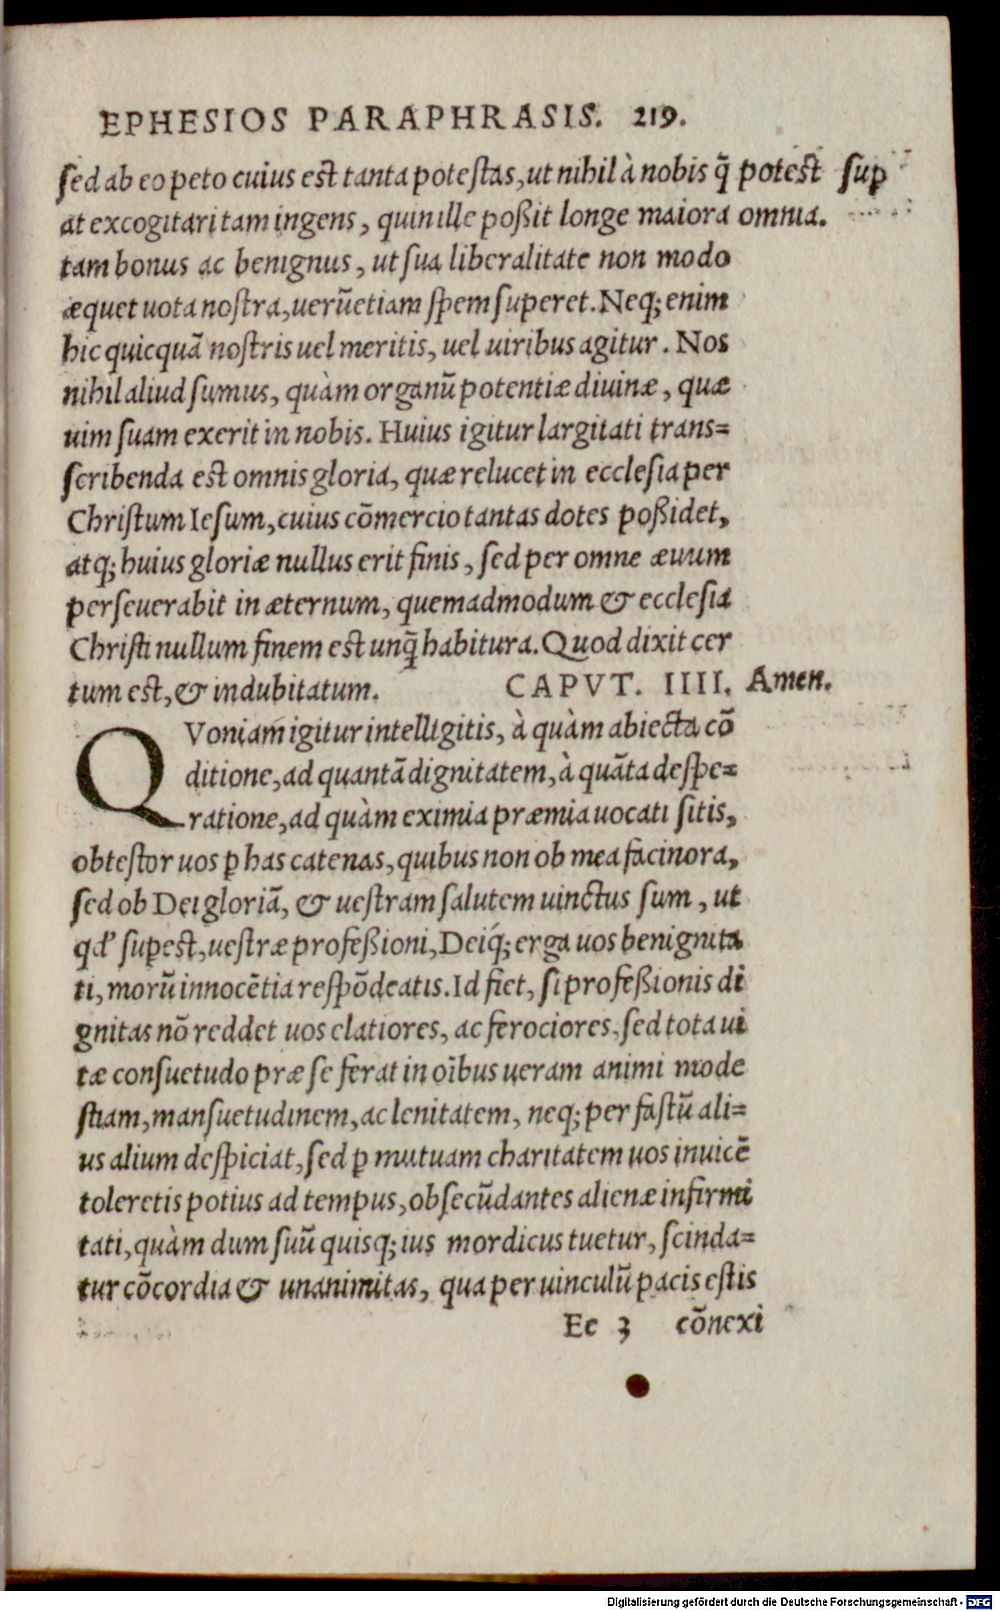 EPHESIOS PARAPHRASIS. 219.
sed ab eo peto cuius est tanta potestas, ut nihil à nobis q̃ potest sup
at excogitari tam ingens, quin ille poßit longe maiora omnia.
tam bonus ac benignus, ut sua liberalitate non modo
æquet uota nostra, uerũetiam spem superet. Neq; enim
hic quicquã nostris uel meritis, uel uiribus agitur. Nos
nihil aliud sumus, quàm organũ potentiæ diuinæ, quæ
uim suam exerit in nobis. Huius igitur largitati trans=
scribenda est omnis gloria, quæ relucet in ecclesia per
Christum Iesum, cuius cõmercio tantas dotes poßidet,
atq; huius gloriæ nullus erit finis, sed per omne æuum
perseuerabit in æternum, quemadmodum & ecclesia
Christi nullum finem est unq̃ habitura. Quod dixit cer
tum est, & indubitatum. CAPVT. IIII. Amen.
QVoniam igitur intelligitis, à quàm abiecta cõ
ditione, ad quantã dignitatem, à quãta despe=
ratione, ad quàm eximia præmia uocati sitis,
obtestor uos ꝑ has catenas, quibus non ob mea facinora,
sed ob Dei gloriã, & uestram salutem uinctus sum, ut
qd' suꝑest, uestræ profeßioni, Deiq́; erga uos benignita
ti, morũ innocẽtia respõdeatis. Id fiet, si profeßionis di
gnitas nõ reddet uos elatiores, ac ferociores, sed tota ui
tæ consuetudo præ se ferat in oĩbus ueram animi mode
stiam, mansuetudinem, ac lenitatem, neq; per fastũ ali=
us alium despiciat, sed ꝑ mutuam charitatem uos inuicẽ
toleretis potius ad tempus, obsecũdantes alienæ infirmi
tati, quàm dum suũ quisq; ius mordicus tuetur, scinda=
tur cõcordia & unanimitas, qua per uinculũ pacis estis
Ee 3 cõnexi
Digitalisierung gefördert durch die Deutsche Forschungsgemeinschaft - DFG